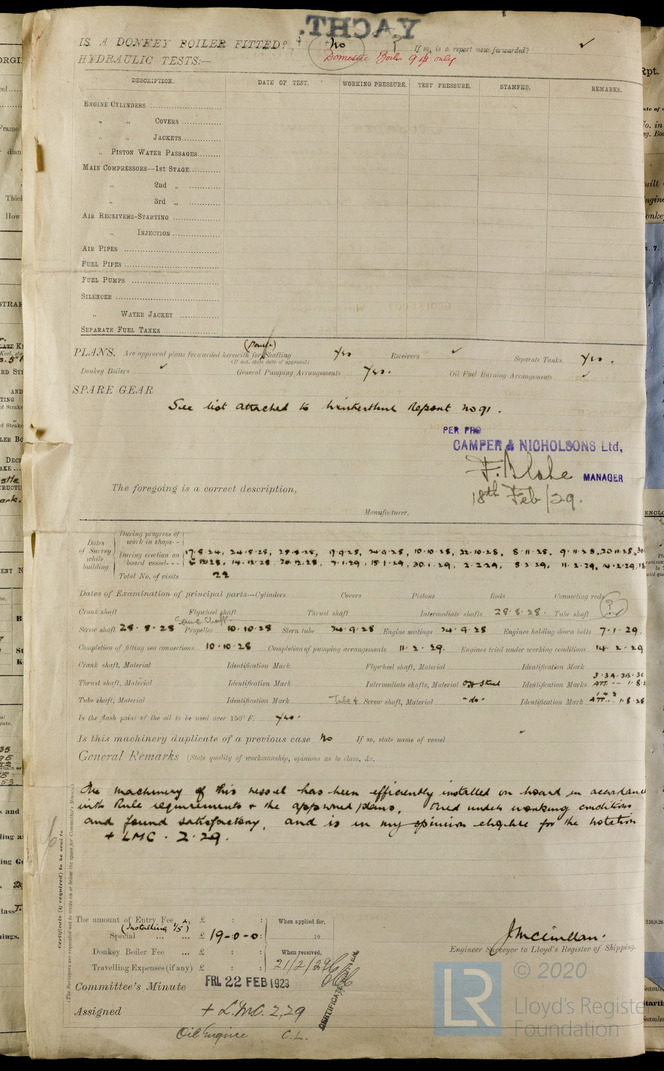 YACHT.
IS A DONKEY BOILER FITTED? No If so, is a report now forwarded? ✓
Domestic Boiler only
HYDRAULIC TESTS:—
DESCRIPTION. DATE OF TEST. WORKING PRESSURE. TEST PRESSURE. STAMPED. REMARKS.
ENGINE CYLINDERS
„ „ COVERS
„ „ JACKETS
„ PISTON WATER PASSAGES
MAIN COMPRESSORS—1st STAGE
„ 2nd „
„ 3rd „
AIR RECEIVERS-STARTING
„ INJECTION
AIR PIPES
FUEL PIPES
FUEL PUMPS
SILENCER
„ WATER JACKET
SEPARATE FUEL TANKS
PLANS. Are approved plans forwarded herewith for Shafting Yes Receivers ✓ Separate Tanks Yes.
(If not, state date of approval)
Donkey Boilers ✓ General Pumping Arrangements Yes. Oil Fuel Burning Arrangements ✓
SPARE GEAR
See list attached to Winterthur Report No 91.
PER PRO
CAMPER & NICHOLSONS Ltd,
F. Blake MANAGER
18th Feb/29.
The foregoing is a correct description,
Manufacturer.
Dates of Survey while building
During progress of work in shops--
During erection on board vessel--- 17.8.24, 24.8.28, 28.8.28, 17.9.28, 24.9.28, 10.10.28, 22.10.28, 8.11.28, 9.11.28, 20.11.28,
5.12.28, 14.12.28, 20.12.28, 7.1.29, 15.1.29, 30.1.29, 2.2.29, 8.2.29, 11.2.29, 14.2.29,
Total No. of visits 22
Dates of Examination of principal parts—Cylinders Covers Pistons Rods Connecting rods
Crank shaft Flywheel shaft Thrust shaft Intermediate shafts 28.8.28. Tube shaft
Screw shaft 28.8.28 Propeller 10.10.28 Stern tube 24.9.28 Engine seatings 24.9.28 Engines holding down bolts 7.1.29.
Completion of fitting sea connections 10.10.28 Completion of pumping arrangements 11.2.29. Engines tried under working conditions 14.2.29
Crank shaft, Material Identification Mark Flywheel shaft, Material Identification Mark
Thrust shaft, Material Identification Mark Intermediate shafts, Material Identification Marks
Tube shaft, Material Identification Mark Tube & Screw shaft, Material -do- Identification Mark
Is the flash point of the oil to be used over 150° F. Yes.
Is this machinery duplicate of a previous case No If so, state name of vessel
General Remarks (State quality of workmanship, opinions as to class, &c.
The machinery of this vessel has been efficiently installed on board in accordance
with Rule requirements & the approved plans, tried under working conditions
and found satisfactory, and is in my opinion eligible for the notation
+ LMC . 2.29.
Certificate (if required) to be sent to
The amount of Entry Fee £ : : When applied for,
(Installing 1/5)
Special £ 19-0-0 19
Donkey Boiler Fee £ : : When received,
Travelling Expenses (if any) £ : : 21/2/29
J McMillan.
Engineer Surveyor to Lloyd's Register of Shipping.
Committee's Minute FRI. 22 FEB 1923
Assigned + L.M.C. 2,29
Oil Engine C.L.
LR
© 2020
Lloyd's Register
Foundation